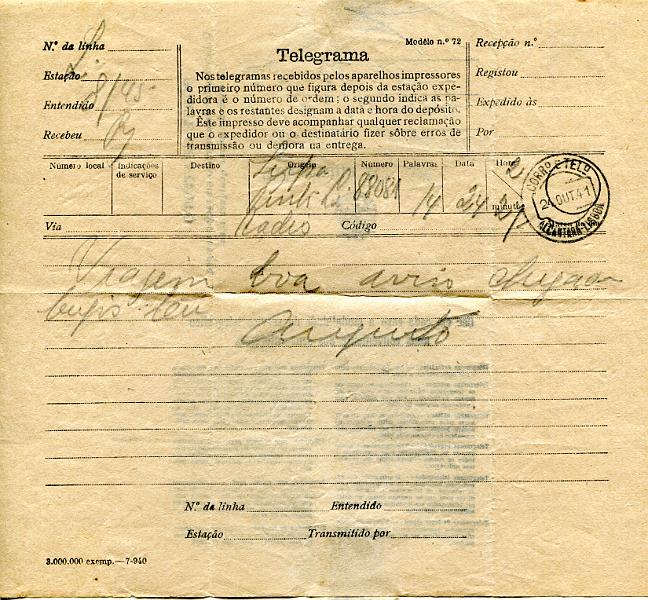 N.º da linha
Estação
Entendido
Recebeu
Telegrama
Modêlo n.º 72
Nos telegramas recebidos pelos aparelhos impressores
o primeiro número que figura depois da estação expe-
didora é o número de ordem; o segundo indica as pa-
lavras e os restantes designam a data e hora do depósito.
Êste impresso deve acompanhar qualquer reclamação
que o expedidor ou o destinatário fizer sôbre erros de
transmissão ou demora na entrega.
Recepção n.º
Registou
Expedido às
Por
Número local
Indicações
de serviço
Destino
Origem
Número
Palavras
Data
Hora
minuto
14 24
CORRO E TELO
24 OUT. 41
ALCANTARA-LISBOA
Via
Radio
Código
Viagem boa avisa chegada
beijos teu
Augusto
N.º da linha
Entendido
Estação
Transmitido por
3.000.000 exemp.—7-940